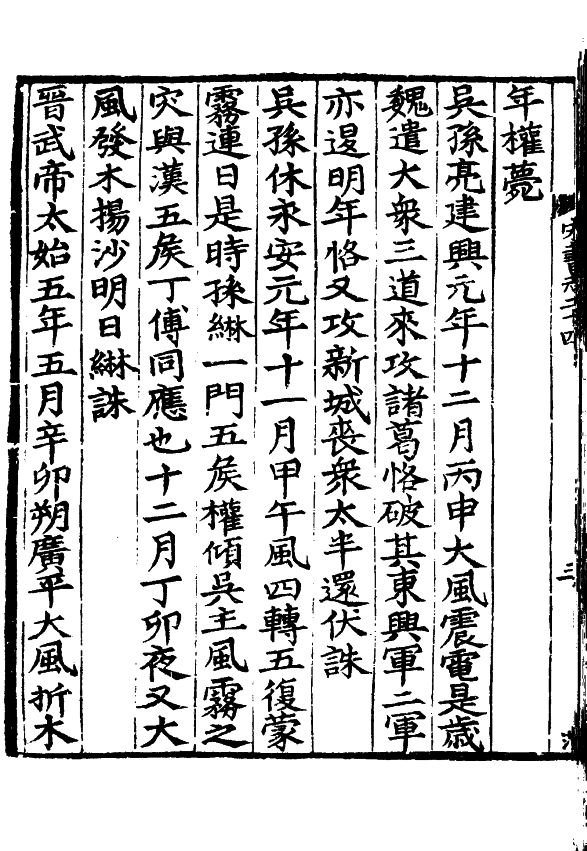 年權薨
吳孫亮建興元年十二月丙申大風震電是歳
魏遣大衆三道來攻諸葛恪破其東興軍二軍
亦退明年恪又攻新城喪衆太半還伏誅
吳孫休永安元年十一月甲午風四轉五復蒙
霧連日是時孫綝一門五侯權傾吳主風霧之
灾與漢五侯丁傅同應也十二月丁卯夜又大
風發木揚沙明日綝誅
晉武帝太始五年五月辛卯朔廣平大風折木
宋書志二十四
三